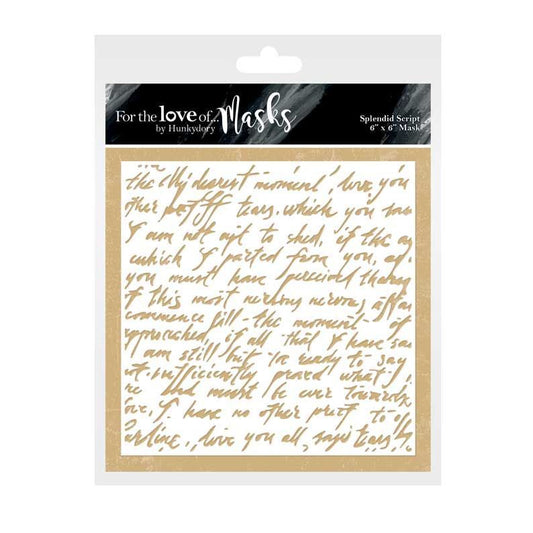 For the love of... Masks
by Hunkydory
Splendid Script
6" x 6" Mask
the My dearest moment, love you
other proff tears. which you saw
I am not apt to shed, if the ag
which I parted from you, ad
you must have percived therory
of this most nerving nervory affai
commence fill - the moment - of
approached, if all that I have sa
am still but in ready to say
ot. sufficiently proved what I
re and must be ever towards
ove, I have no other prect to of
love you all, says tears